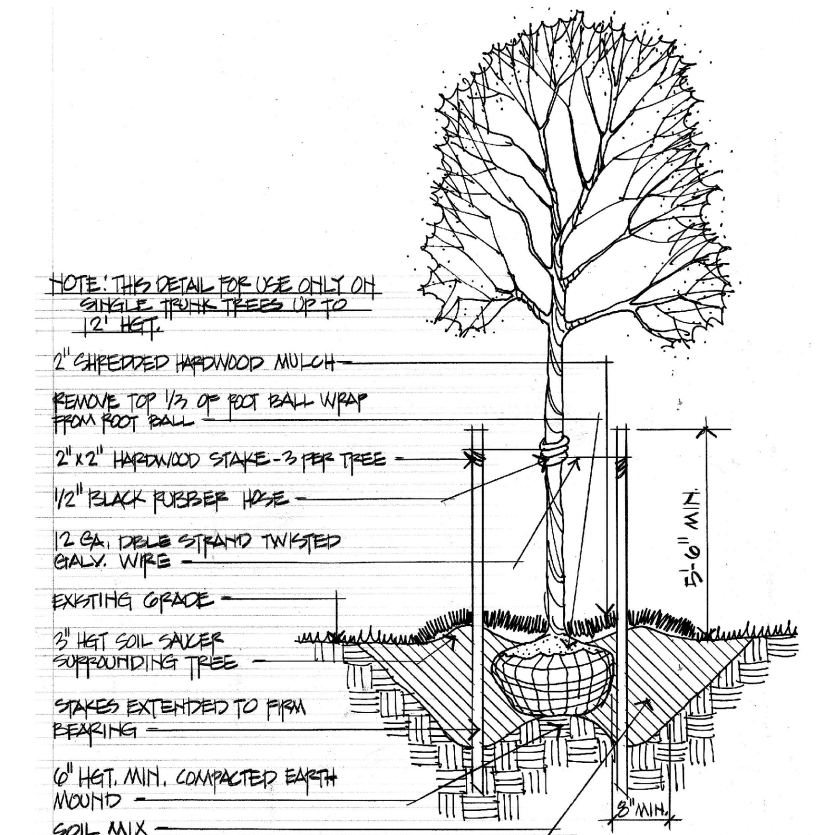 NOTE: THIS DETAIL FOR USE ONLY ON
SINGLE TRUNK TREES UP TO
12' HGT.
2" SHREDDED HARDWOOD MULCH
REMOVE TOP 1/3 OF ROOT BALL WRAP
FROM ROOT BALL
2" X 2" HARDWOOD STAKE - 3 PER TREE
1/2" BLACK RUBBER HOSE
12 GA. DBLE STRAND TWISTED
GALV. WIRE
EXISTING GRADE
3" HGT SOIL SAUCER
SURROUNDING TREE
STAKES EXTENDED TO FIRM
BEARING
6" HGT. MIN. COMPACTED EARTH
MOUND
SOIL MIX
5'-6" MIN.
8" MIN.